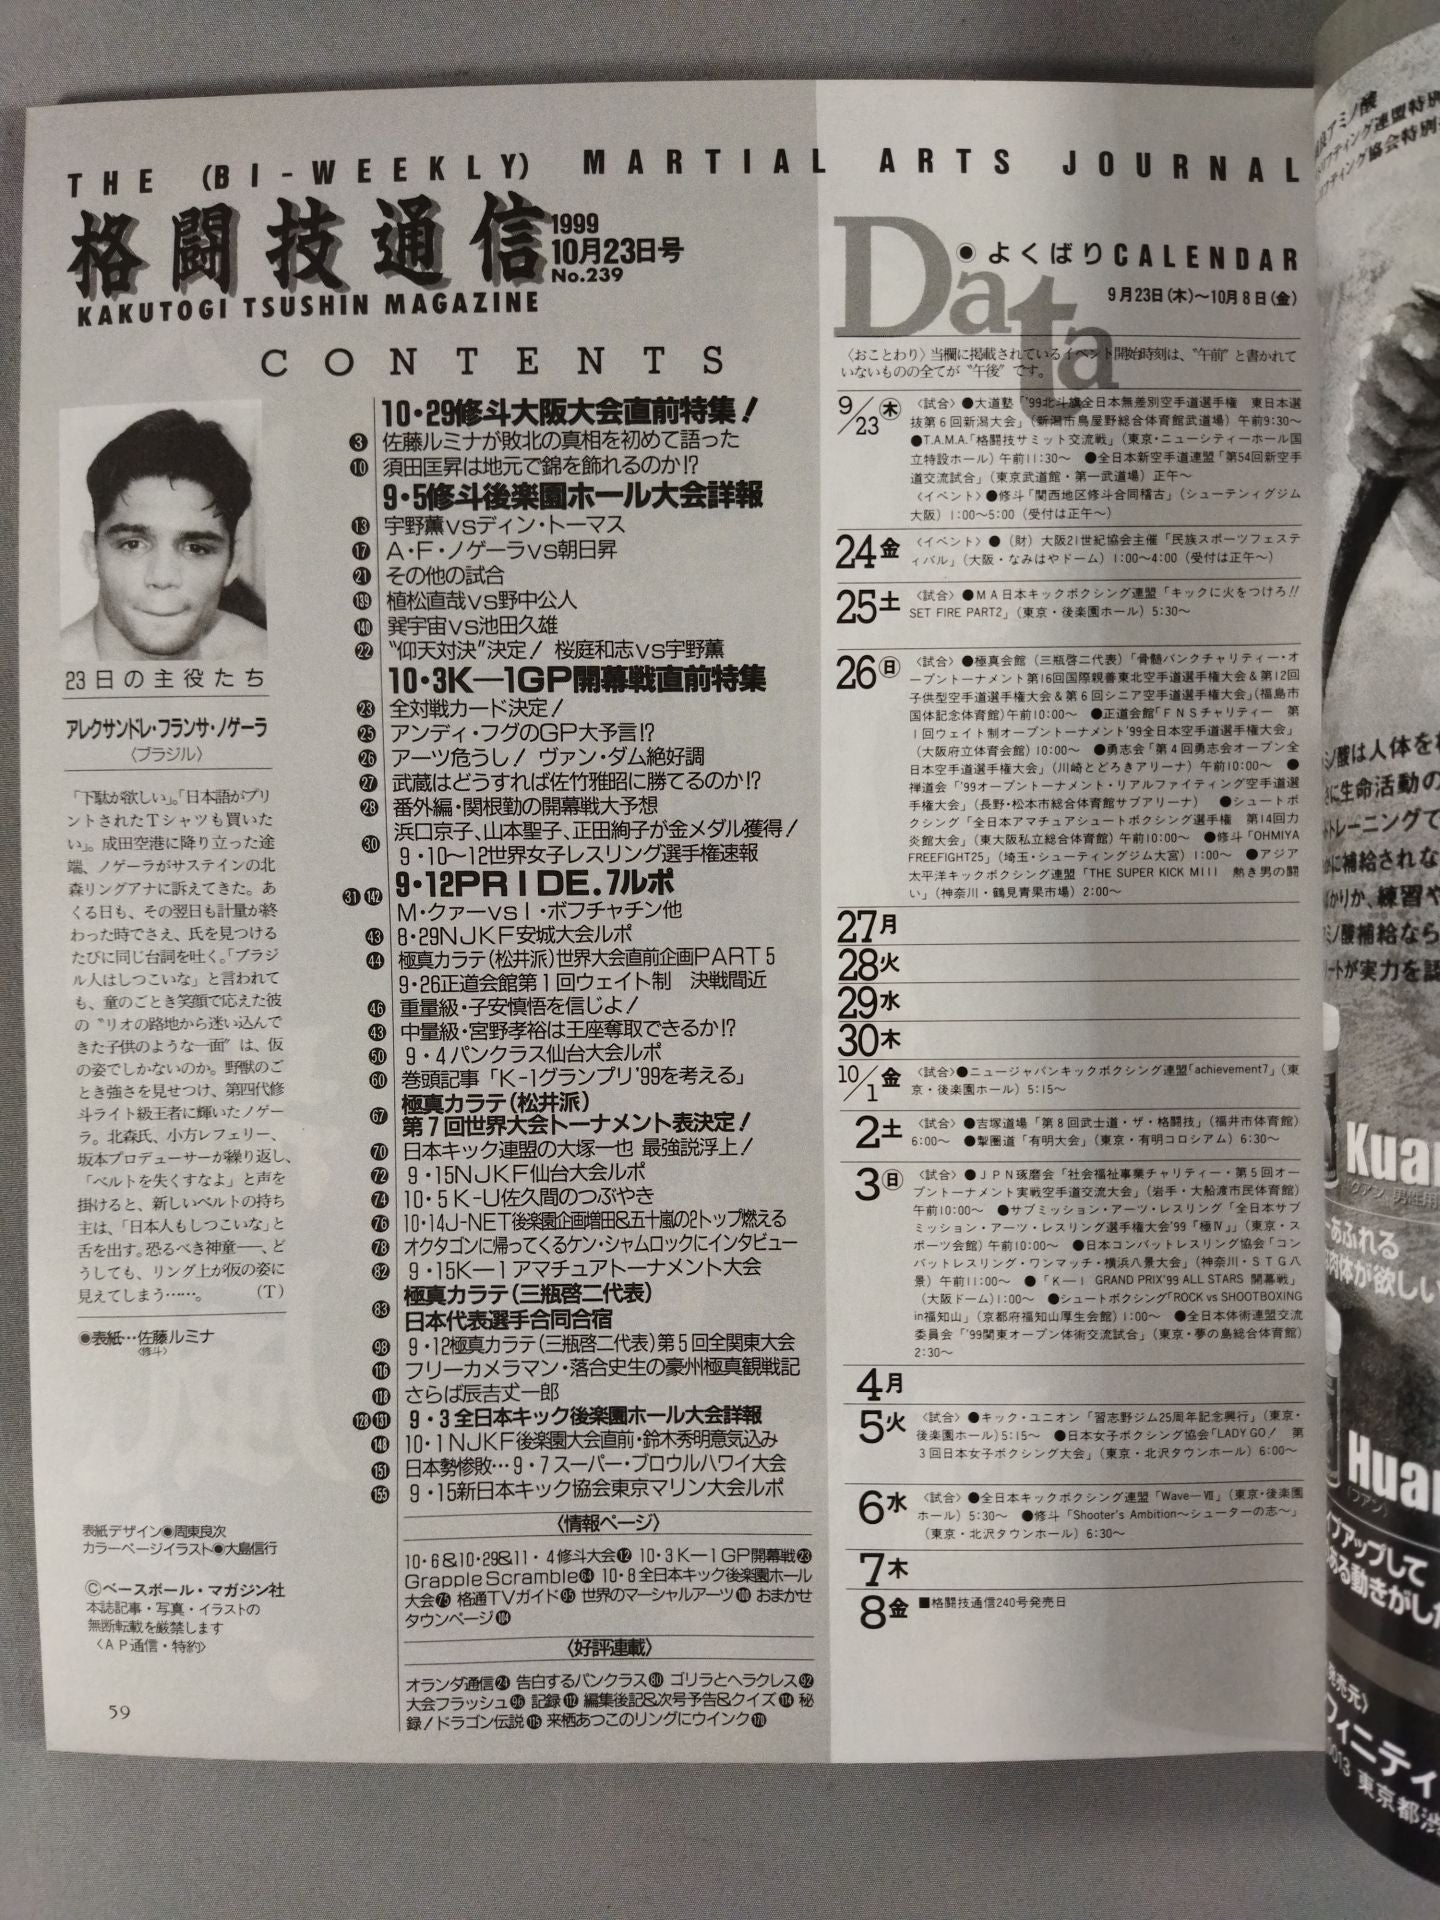 THE (BI-WEEKLY) MARTIAL ARTS JOURNAL
格闘技通信
1999
10月23日号
No.239
KAKUTOGI TSUSHIN MAGAZINE
CONTENTS
23日の主役たち
アレクサンドレ・フランサ・ノゲーラ
〈ブラジル〉
「下駄が欲しい」。「日本語がプリ
ントされたTシャツも買いた
い」。成田空港に降り立った途
端、ノゲーラがサステインの北
森リングアナに訴えてきた。あ
くる日も、その翌日も計量が終
わった時でさえ、氏を見つける
たびに同じ台詞を吐く。「ブラジ
ル人はしつこいな」と言われて
も、童のごとき笑顔で応えた彼
の〝リオの路地から迷い込んで
きた子供のような一面〟は、仮
の姿でしかないのか。野獣のご
とき強さを見せつけ、第四代修
斗ライト級王者に輝いたノゲー
ラ。北森氏、小方レフェリー、
坂本プロデューサーが繰り返し、
「ベルトを失くすなよ」と声を
掛けると、新しいベルトの持ち
主は、「日本人もしつこいな」と
舌を出す。恐るべき神童──、ど
うしても、リング上が仮の姿に
見えてしまう……。 (T)
●表紙…佐藤ルミナ
〈修斗〉
表紙デザイン●周東良次
カラーページイラスト●大島信行
©ベースボール・マガジン社
本誌記事・写真・イラストの
無断転載を厳禁します
〈AP通信・特約〉
59
10・29修斗大阪大会直前特集!
3 佐藤ルミナが敗北の真相を初めて語った
10 須田匡昇は地元で錦を飾れるのか!?
9・5修斗後楽園ホール大会詳報
13 宇野薫vsディン・トーマス
17 A・F・ノゲーラvs朝日昇
21 その他の試合
139 植松直哉vs野中公人
140 巽宇宙vs池田久雄
22 〝仰天対決〟決定! 桜庭和志vs宇野薫
10・3K─1GP開幕戦直前特集
23 全対戦カード決定!
25 アンディ・フグのGP大予言!?
26 アーツ危うし! ヴァン・ダム絶好調
27 武蔵はどうすれば佐竹雅昭に勝てるのか!?
28 番外編・関根勤の開幕戦大予想
30 浜口京子、山本聖子、正田絢子が金メダル獲得!
9・10〜12世界女子レスリング選手権速報
31 142 9・12PRIDE.7ルポ
M・クァーvsI・ボフチャチン他
43 8・29NJKF安城大会ルポ
44 極真カラテ(松井派)世界大会直前企画PART5
9・26正道会館第1回ウェイト制 決戦間近
46 重量級・子安慎悟を信じよ!
43 中量級・宮野孝裕は王座奪取できるか!?
50 9・4パンクラス仙台大会ルポ
60 巻頭記事「K-1グランプリ'99を考える」
67 極真カラテ(松井派)
第7回世界大会トーナメント表決定!
70 日本キック連盟の大塚一也 最強説浮上!
72 9・15NJKF仙台大会ルポ
74 10・5K-U佐久間のつぶやき
76 10・14J-NET後楽園企画増田&五十嵐の2トップ燃える
78 オクタゴンに帰ってくるケン・シャムロックにインタビュー
82 9・15K─1アマチュアトーナメント大会
83 極真カラテ(三瓶啓二代表)
日本代表選手合同合宿
98 9・12極真カラテ(三瓶啓二代表)第5回全関東大会
116 フリーカメラマン・落合史生の豪州極真観戦記
118 さらば辰吉丈一郎
128 131 9・3全日本キック後楽園ホール大会詳報
148 10・1NJKF後楽園大会直前・鈴木秀明意気込み
151 日本勢惨敗…9・7スーパー・ブロウルハワイ大会
155 9・15新日本キック協会東京マリン大会ルポ
〈情報ページ〉
10・6&10・29&11・4修斗大会12 10・3K─1GP開幕戦23
Grapple Scramble64 10・8全日本キック後楽園ホール
大会75 格通TVガイド95 世界のマーシャルアーツ100 おまかせ
タウンページ104
〈好評連載〉
オランダ通信24 告白するパンクラス80 ゴリラとヘラクレス92
大会フラッシュ96 記録112 編集後記&次号予告&クイズ114 秘
録!ドラゴン伝説115 来栖あつこのリングにウインク170
Data
●よくばりCALENDAR
9月23日(木)〜10月8日(金)
〈おことわり〉当欄に掲載されているイベント開始時刻は、〝午前〟と書かれて
いないものの全てが〝午後〟です。
9/23 木 〈試合〉●大道塾「'99北斗旗全日本無差別空手道選手権 東日本選
抜第6回新潟大会」(新潟市鳥屋野総合体育館武道場)午前9:30〜
●T.A.M.A.「格闘技サミット交流戦」(東京・ニューシティーホール国
立特設ホール)午前11:30〜 ●全日本新空手道連盟「第54回新空手
道交流試合」(東京武道館・第一武道場)正午〜
〈イベント〉●修斗「関西地区修斗合同稽古」(シューティングジム
大阪)1:00〜5:00(受付は正午〜)
24 金 〈イベント〉●(財)大阪21世紀協会主催「民族スポーツフェステ
ィバル」(大阪・なみはやドーム)1:00〜4:00(受付は正午〜)
25 土 〈試合〉●MA日本キックボクシング連盟「キックに火をつけろ!!
SET FIRE PART2」(東京・後楽園ホール)5:30〜
26 日 〈試合〉●極真会館(三瓶啓二代表)「骨髄バンクチャリティー・オ
ープントーナメント第16回国際親善東北空手道選手権大会&第12回
子供型空手道選手権大会&第6回シニア空手道選手権大会」(福島市
国体記念体育館)午前10:00〜 ●正道会館「FNSチャリティー 第
1回ウェイト制オープントーナメント'99全日本空手道選手権大会」
(大阪府立体育会館)10:00〜 ●勇志会「第4回勇志会オープン全
日本空手道選手権大会」(川崎とどろきアリーナ)午前10:00〜 ●
禅道会「'99オープントーナメント・リアルファイティング空手道選
手権大会」(長野・松本市総合体育館サブアリーナ) ●シュートボ
クシング「全日本アマチュアシュートボクシング選手権 第14回力
炎館大会」(東大阪私立総合体育館)午前10:00〜 ●修斗「OHMIYA
FREEFIGHT25」(埼玉・シューティングジム大宮)1:00〜 ●アジア
太平洋キックボクシング連盟「THE SUPER KICK MIII 熱き男の闘
い」(神奈川・鶴見青果市場)2:00〜
27 月
28 火
29 水
30 木
10/1 金 〈試合〉●ニュージャパンキックボクシング連盟「achievement7」(東
京・後楽園ホール)5:15〜
2 土 〈試合〉●吉塚道場「第8回武士道・ザ・格闘技」(福井市体育館)
6:00〜 ●掣圏道「有明大会」(東京・有明コロシアム)6:30〜
3 日 〈試合〉●JPN琢磨会「社会福祉事業チャリティー・第5回オー
プントーナメント実戦空手道交流大会」(岩手・大船渡市民体育館)
午前10:00〜 ●サブミッション・アーツ・レスリング「全日本サブ
ミッション・アーツ・レスリング選手権大会'99「極Ⅳ」」(東京・ス
ポーツ会館)午前10:00〜 ●日本コンバットレスリング協会「コン
バットレスリング・ワンマッチ・横浜八景大会」(神奈川・STG八
景)午前11:00〜 ●「K─1 GRAND PRIX'99 ALL STARS 開幕戦」
(大阪ドーム)1:00〜 ●シュートボクシング「ROCK vs SHOOTBOXING
in福知山」(京都府福知山厚生会館)1:00〜 ●全日本体術連盟交流
委員会「'99関東オープン体術交流試合」(東京・夢の島総合体育館)
2:30〜
4 月
5 火 〈試合〉●キック・ユニオン「習志野ジム25周年記念興行」(東京・
後楽園ホール)5:15〜 ●日本女子ボクシング協会「LADY GO! 第
3回日本女子ボクシング大会」(東京・北沢タウンホール)6:00〜
6 水 〈試合〉●全日本キックボクシング連盟「Wave─Ⅶ」(東京・後楽園
ホール)5:30〜 ●修斗「Shooter's Ambition〜シューターの志〜」
(東京・北沢タウンホール)6:30〜
7 木
8 金 ■格闘技通信240号発売日
アミノ酸
フティング連盟特別
フティング協会特別
ミノ酸は人体を
生命活動の
トレーニングで
に補給されな
かりか、練習や
ミノ酸補給なら
ートが実力を
Kuan
クアン 男性用
あふれる
肉体が欲しい
Huan
(フアン)
イプアップして
ある動きがした
発売元〉
フィニティ
0013 東京都渋